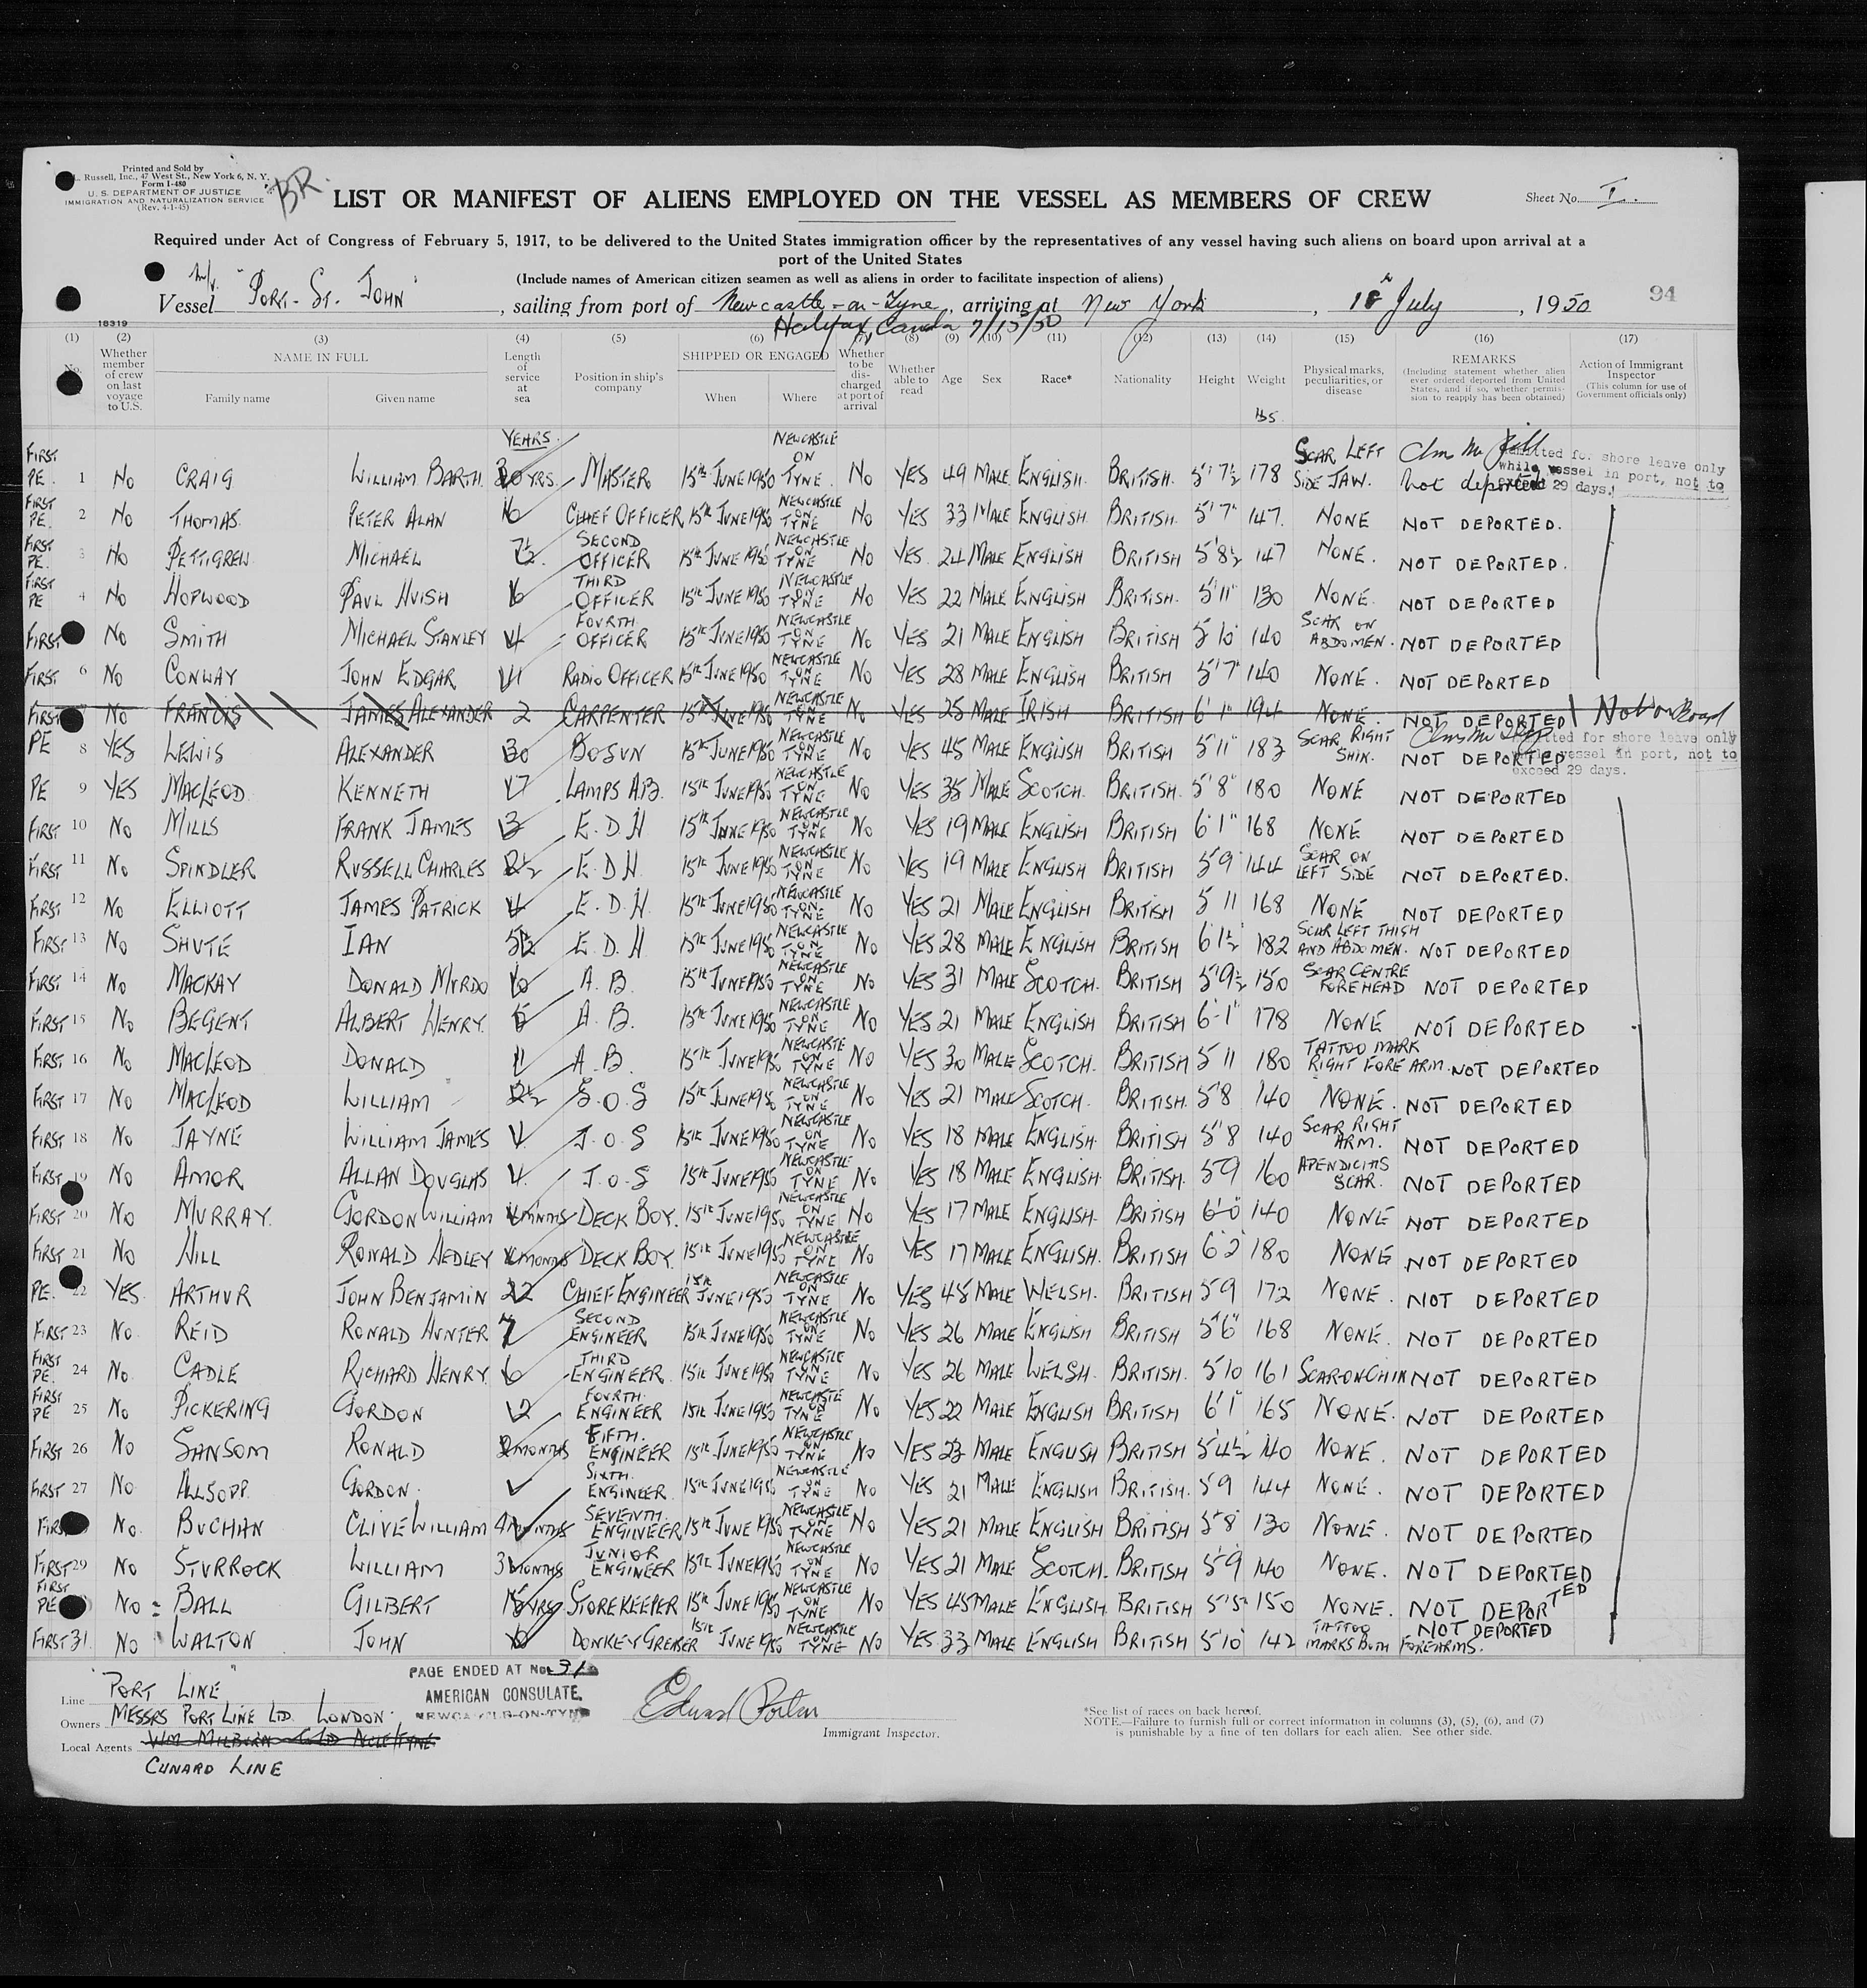 Printed and Sold by
Russell, Inc., 47 West St., New York 6, N. Y.
Form I-480
U. S. DEPARTMENT OF JUSTICE
IMMIGRATION AND NATURALIZATION SERVICE
(Rev. 4-1-45)
BR.
LIST OR MANIFEST OF ALIENS EMPLOYED ON THE VESSEL AS MEMBERS OF CREW
Sheet No. I.
Required under Act of Congress of February 5, 1917, to be delivered to the United States immigration officer by the representatives of any vessel having such aliens on board upon arrival at a
port of the United States
(Include names of American citizen seamen as well as aliens in order to facilitate inspection of aliens)
Vessel M/V. "PORT-ST. JOHN", sailing from port of Newcastle-on-Tyne, arriving at New York, July, 1950 94
Halifax, Canda 7/15/50
16319
(1) (2) (3) (4) (5) (6) (7) (8) (9) (10) (11) (12) (13) (14) (15) (16) (17)
No. Whether member of crew on last voyage to U.S. NAME IN FULL Family name Given name Length of service at sea Position in ship's company SHIPPED OR ENGAGED When Where Whether to be discharged at port of arrival Whether able to read Age Sex Race* Nationality Height Weight Physical marks, peculiarities, or disease REMARKS (Including statement whether alien ever ordered deported from United States, and if so, whether permission to reapply has been obtained) Action of Immigrant Inspector (This column for use of Government officials only)
YEARS.
FIRST PE. 1 No CRAIG WILLIAM BARTH. 30 YRS. MASTER 15th JUNE 1950 NEWCASTLE ON TYNE. No YES 49 MALE ENGLISH. BRITISH. 5'7½ 178 SCAR LEFT SIDE JAW. Not deported
Admitted for shore leave only while vessel in port, not to exceed 29 days.
FIRST PE. 2 No THOMAS. PETER ALAN 16 CHIEF OFFICER 15th JUNE 1950 NEWCASTLE ON TYNE No YES 33 MALE ENGLISH. BRITISH. 5'7" 147. NONE NOT DEPORTED.
FIRST PE. 3 No PETTIGREW. MICHAEL 7½. SECOND OFFICER 15th JUNE 1950 NEWCASTLE ON TYNE No YES. 24 MALE ENGLISH BRITISH 5'8½ 147 NONE. NOT DEPORTED.
FIRST PE 4 No HOPWOOD PAUL HUISH 6 THIRD OFFICER 15th JUNE 1950 NEWCASTLE ON TYNE No YES 22 MALE ENGLISH BRITISH. 5'11" 130 NONE. NOT DEPORTED
FIRST No SMITH MICHAEL STANLEY 4 FOURTH OFFICER 15th JUNE 1950 NEWCASTLE ON TYNE No YES 21 MALE ENGLISH BRITISH 5 10 140 SCAR ON ABDOMEN. NOT DEPORTED
FIRST 6 No CONWAY JOHN EDGAR RADIO OFFICER 15th JUNE 1950 NEWCASTLE ON TYNE No YES 28 MALE ENGLISH BRITISH 5'7" 140 NONE. NOT DEPORTED
FIRST 7 No FRANCIS JAMES ALEXANDER 2 CARPENTER 15th JUNE 1950 NEWCASTLE ON TYNE No YES 25 MALE IRISH BRITISH 6'1" 194 NONE. NOT DEPORTED Not on Board
PE 8 YES LEWIS ALEXANDER 30 BOSUN 15th JUNE 1950 NEWCASTLE ON TYNE No YES 45 MALE ENGLISH BRITISH 5'11" 183 SCAR RIGHT SHIN. NOT DEPORTED
Admitted for shore leave only while vessel in port, not to exceed 29 days.
PE 9 YES MACLEOD. KENNETH 17 LAMPS A.B. 15th JUNE 1950 NEWCASTLE ON TYNE No YES 35 MALE SCOTCH. BRITISH. 5'8" 180 NONE NOT DEPORTED
FIRST 10 No MILLS FRANK JAMES 3 E.D.H 15th JUNE 1950 NEWCASTLE ON TYNE No YES 19 MALE ENGLISH BRITISH 6'1" 168 NONE NOT DEPORTED
FIRST 11 No SPINDLER RUSSELL CHARLES 2½ E.D.H. 15th JUNE 1950 NEWCASTLE ON TYNE No YES 19 MALE ENGLISH BRITISH 5 9 144 SCAR ON LEFT SIDE NOT DEPORTED.
FIRST 12 No ELLIOTT JAMES PATRICK 4 E.D.H. 15th JUNE 1950 NEWCASTLE ON TYNE No YES 21 MALE ENGLISH BRITISH 5 11 168 NONE NOT DEPORTED
FIRST 13 No SHUTE IAN 5½ E.D.H 15th JUNE 1950 NEWCASTLE ON TYNE No YES 28 MALE ENGLISH BRITISH 6 1½ 182 SCAR LEFT THIGH AND ABDOMEN. NOT DEPORTED
FIRST 14 No MACKAY DONALD MURDO 6 A.B. 15th JUNE 1950 NEWCASTLE ON TYNE No YES 31 MALE SCOTCH. BRITISH 5'9½ 150 SCAR CENTRE FOREHEAD NOT DEPORTED
FIRST 15 No BEGENT ALBERT HENRY. 5 A.B. 15th JUNE 1950 NEWCASTLE ON TYNE No YES 21 MALE ENGLISH BRITISH 6-1" 178 NONE NOT DEPORTED
FIRST 16 No MACLEOD DONALD 11 A.B. 15th JUNE 1950 NEWCASTLE ON TYNE No YES 30 MALE SCOTCH. BRITISH 5 11 180 TATTOO MARK RIGHT FORE ARM. NOT DEPORTED
FIRST 17 No MACLEOD WILLIAM 2½ S.O.S 15th JUNE 1950 NEWCASTLE ON TYNE No YES 21 MALE SCOTCH. BRITISH. 5'8 140 NONE. NOT DEPORTED
FIRST 18 No JAYNE WILLIAM JAMES J.O.S 15th JUNE 1950 NEWCASTLE ON TYNE No YES 18 MALE ENGLISH. BRITISH 5"8 140 SCAR RIGHT ARM. NOT DEPORTED
FIRST 19 No AMOR ALLAN DOUGLAS J.O.S 15th JUNE 1950 NEWCASTLE ON TYNE No YES 18 MALE ENGLISH. BRITISH. 5 9 160 APENDICITIS SCAR. NOT DEPORTED
FIRST 20 No MURRAY. GORDON WILLIAM MNTHS DECK BOY. 15th JUNE 1950 NEWCASTLE ON TYNE No YES 17 MALE ENGLISH. BRITISH 6-0 140 NONE NOT DEPORTED
FIRST 21 No HILL RONALD HEDLEY MONTHS DECK BOY. 15th JUNE 1950 NEWCASTLE ON TYNE No YES 17 MALE ENGLISH. BRITISH 6 2 180 NONE NOT DEPORTED
PE. 22 YES. ARTHUR JOHN BENJAMIN 22 CHIEF ENGINEER 15th JUNE 1950 NEWCASTLE ON TYNE No YES 48 MALE WELSH. BRITISH 5 9 172 NONE. NOT DEPORTED
FIRST 23 No. REID RONALD HUNTER 7 SECOND ENGINEER 15th JUNE 1950 NEWCASTLE ON TYNE No YES 26 MALE ENGLISH BRITISH 5'6" 168 NONE. NOT DEPORTED
FIRST PE. 24 No. CADLE RICHARD HENRY. 6 THIRD ENGINEER 15th JUNE 1950 NEWCASTLE ON TYNE No YES 26 MALE WELSH. BRITISH. 5 10 161 SCAR ON CHIN NOT DEPORTED
FIRST PE 25 No PICKERING GORDON 2 FOURTH ENGINEER 15th JUNE 1950 NEWCASTLE ON TYNE No YES 22 MALE ENGLISH BRITISH 6'1" 165 NONE. NOT DEPORTED
FIRST 26 No SANSOM RONALD MONTHS FIFTH. ENGINEER 15th JUNE 1950 NEWCASTLE ON TYNE No YES 23 MALE ENGLISH BRITISH 5'4½ 140 NONE. NOT DEPORTED
FIRST 27 No ALLSOPP. GORDON. SIXTH. ENGINEER. 15th JUNE 1950 NEWCASTLE ON TYNE No YES 21 MALE ENGLISH BRITISH. 5 9 144 NONE. NOT DEPORTED
FIRST No. BUCHAN CLIVE WILLIAM MONTHS SEVENTH. ENGINEER 15th JUNE 1950 NEWCASTLE ON TYNE No YES 21 MALE ENGLISH BRITISH 5'8 130 NONE. NOT DEPORTED
FIRST 29 No STURROCK WILLIAM 3 MONTHS JUNIOR ENGINEER 15th JUNE 1950 NEWCASTLE ON TYNE No YES 21 MALE SCOTCH. BRITISH 5-9 140 NONE. NOT DEPORTED
FIRST PE No BALL GILBERT 15 YRS STOREKEEPER 15th JUNE 1950 NEWCASTLE ON TYNE No YES 45 MALE ENGLISH. BRITISH 5'5" 150 NONE. NOT DEPORTED
FIRST 31. No WALTON JOHN DONKEY GREASER 15th JUNE 1950 NEWCASTLE TYNE No YES. 33 MALE ENGLISH BRITISH 5 10 142 TATTOO MARKS BOTH FOREARMS. NOT DEPORTED
Line "PORT LINE"
Owners MESSRS PORT LINE LTD. LONDON.
Local Agents WM MILBURN
CUNARD LINE
PAGE ENDED AT No. 31
AMERICAN CONSULATE.
NEWCASTLE-ON-TYNE
Immigrant Inspector.
*See list of races on back hereof.
NOTE.—Failure to furnish full or correct information in columns (3), (5), (6), and (7)
is punishable by a fine of ten dollars for each alien. See other side.